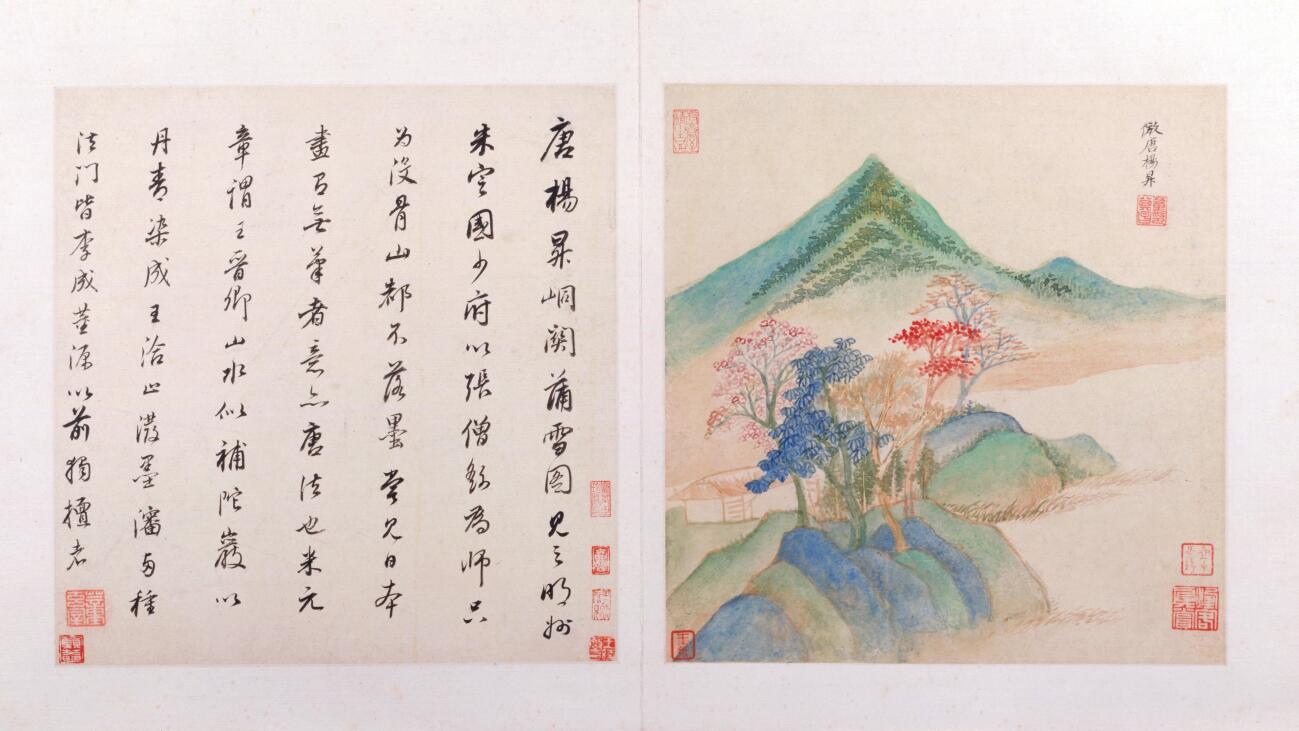 倣唐楊昇
唐楊昇峒關蒲雪圖見之明州
朱定國少府以張僧繇為師只
為没骨山都不落墨嘗見日本
畫有無筆者意亦唐法也米元
章謂王晉卿山水似補陀巖以
丹青染成王洽之潑墨瀋與種
法門皆李成董源以前獨擅者